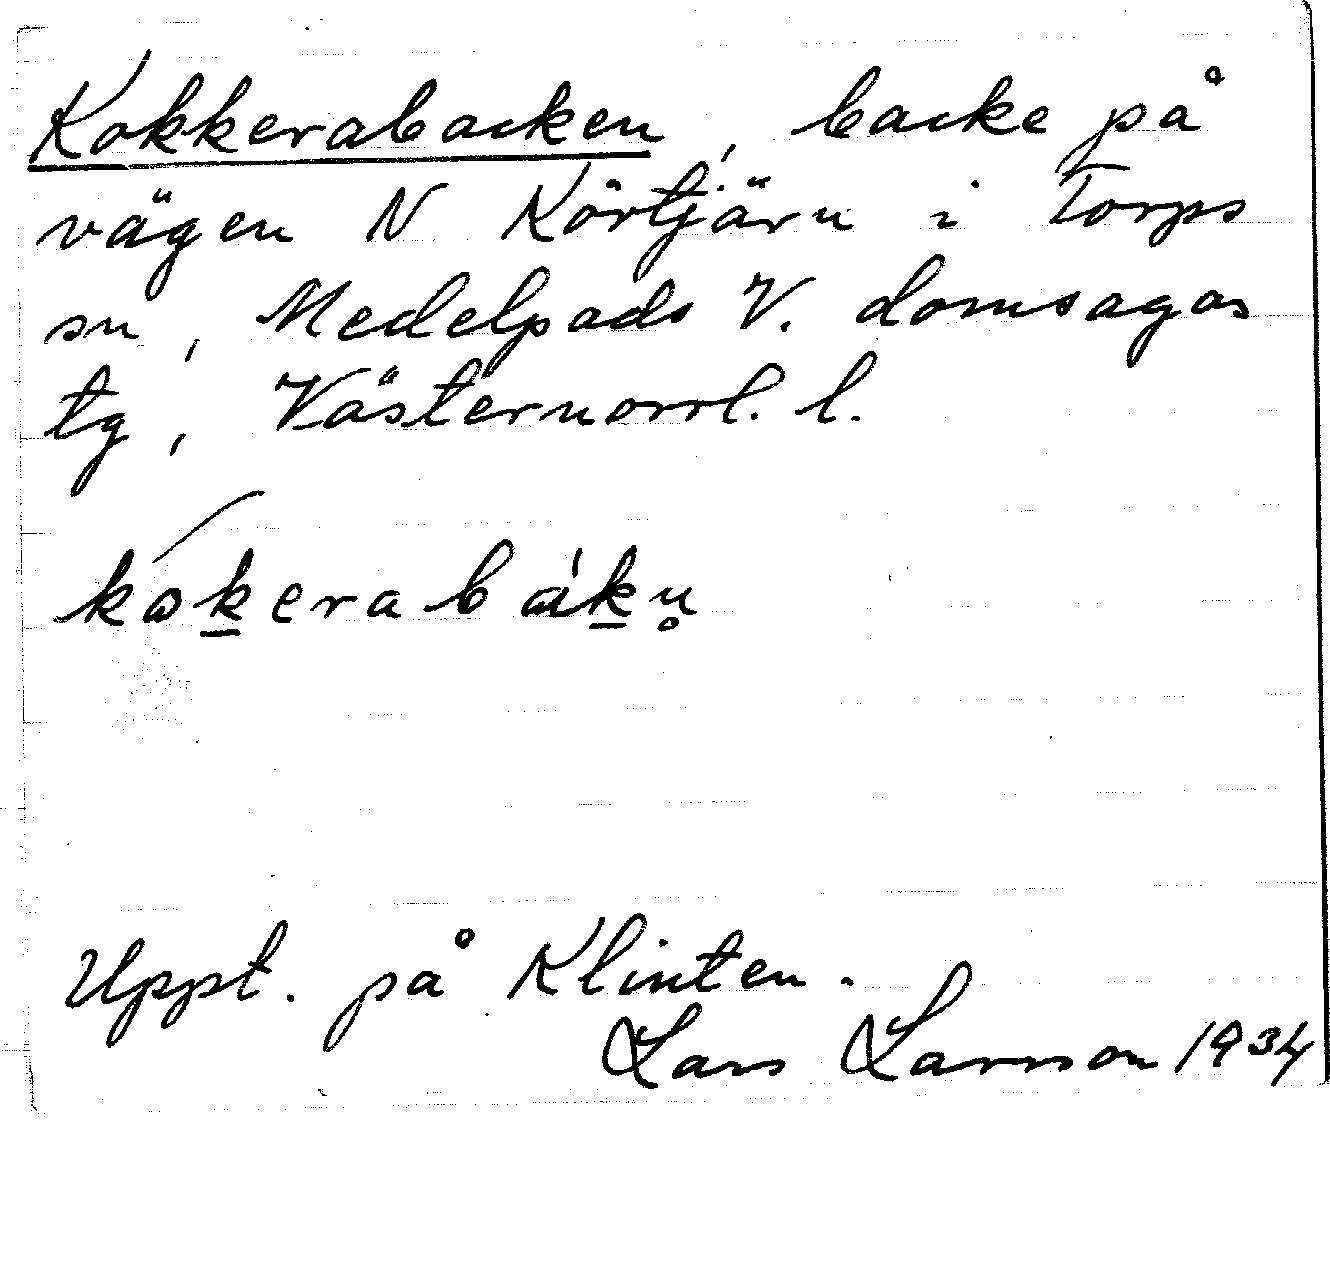 Kokkerabacken, backe på
vägen N Körtjärn i Torps
sn, Medelpads V. domsagas
tg, Västernorrl. l.
kokerabákn̥
Uppt. på Klinten.
Lars Larsson 1934